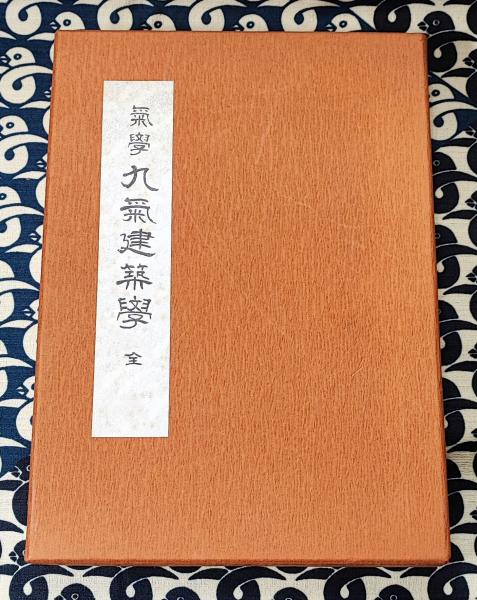 氣學九氣建築學 全